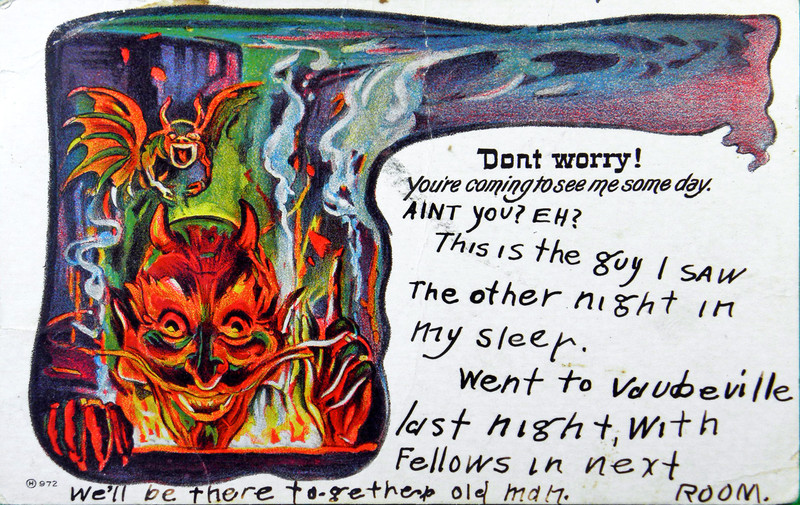 Dont worry!
You're coming to see me some day.
AINT YOU? EH?
This is the guy I SAW
The other night in
my sleep.
Went to Vaudeville
last night, with
Fellows in next
ROOM.
We'll be there to-gether old man.
Ⓗ 972